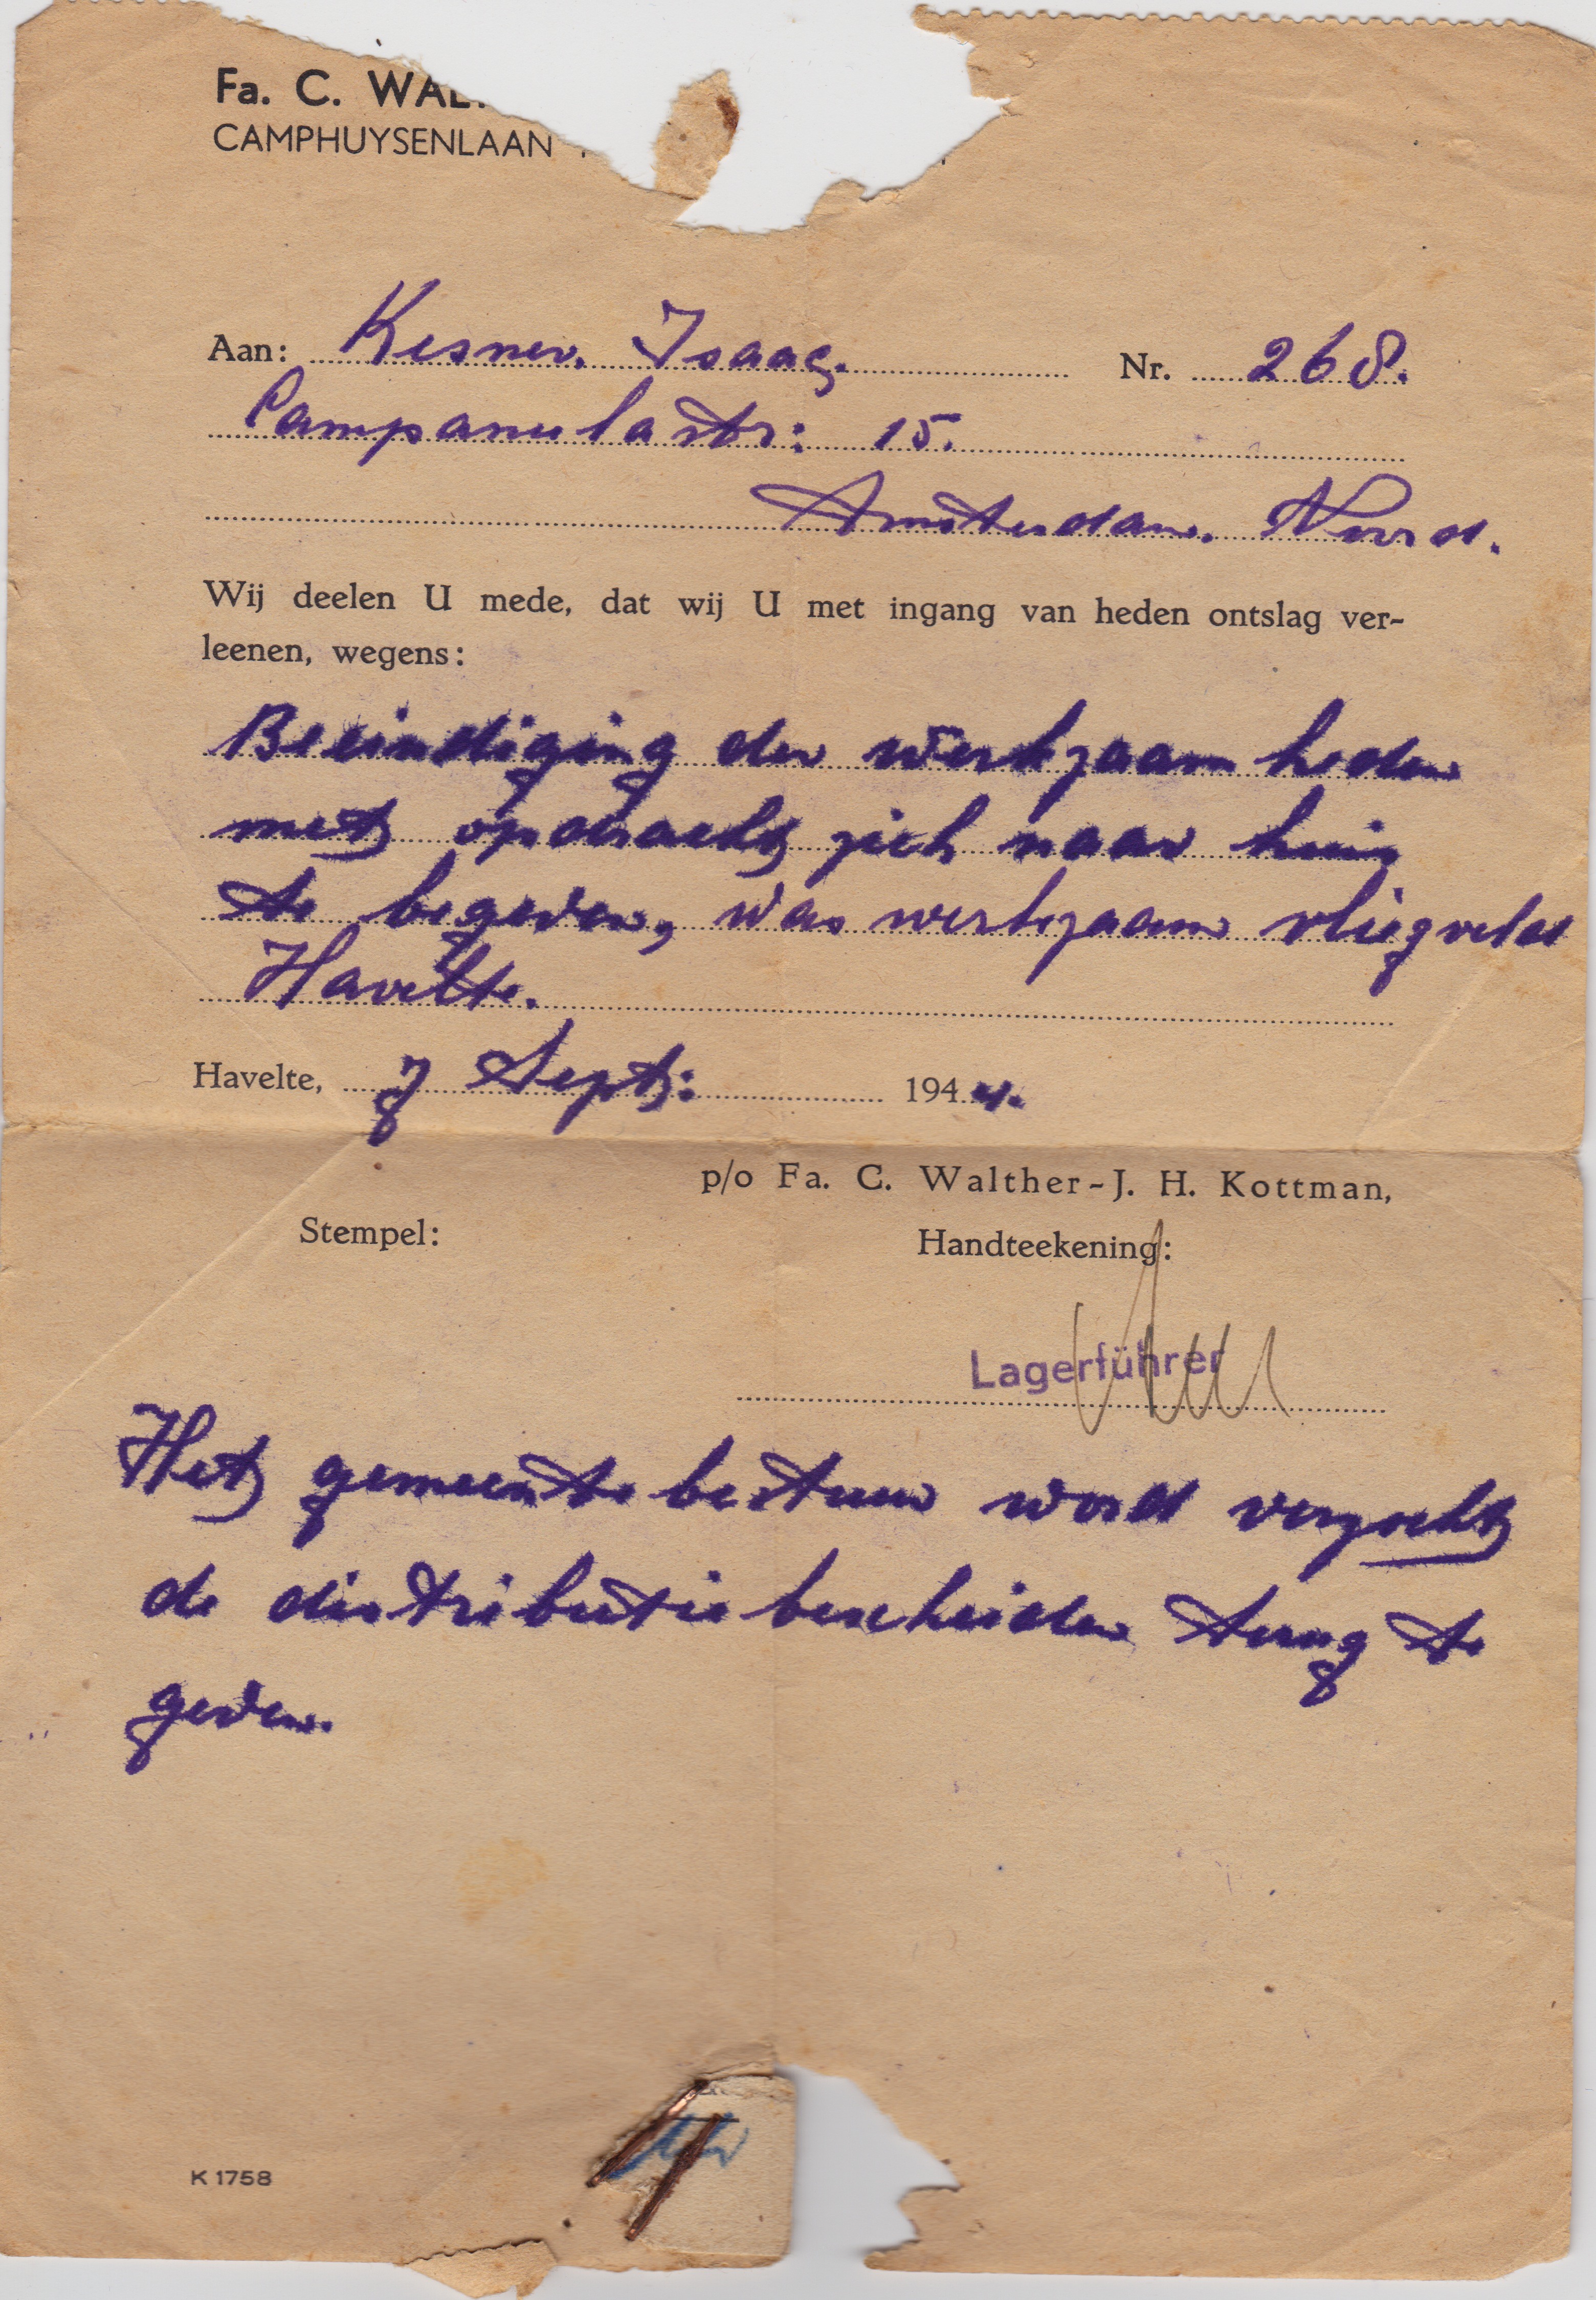 Fa. C. WAL
CAMPHUYSENLAAN
Aan: Kesner. Isaac. Nr. 268.
Campanulastr: 15.
Amsterdam. Noord.
Wij deelen U mede, dat wij U met ingang van heden ontslag ver-
leenen, wegens:
Beeindiging der werkzaamheden
met opdracht zich naar huis
te begeven, was werkzaam vliegveld
Havelte.
Havelte, 7 Sept: 1944.
p/o Fa. C. Walther-J. H. Kottman,
Stempel: Handteekening:
Lagerführer
Het gemeentebestuur word verzocht
de distributiebescheiden terug te
geven.
K 1758